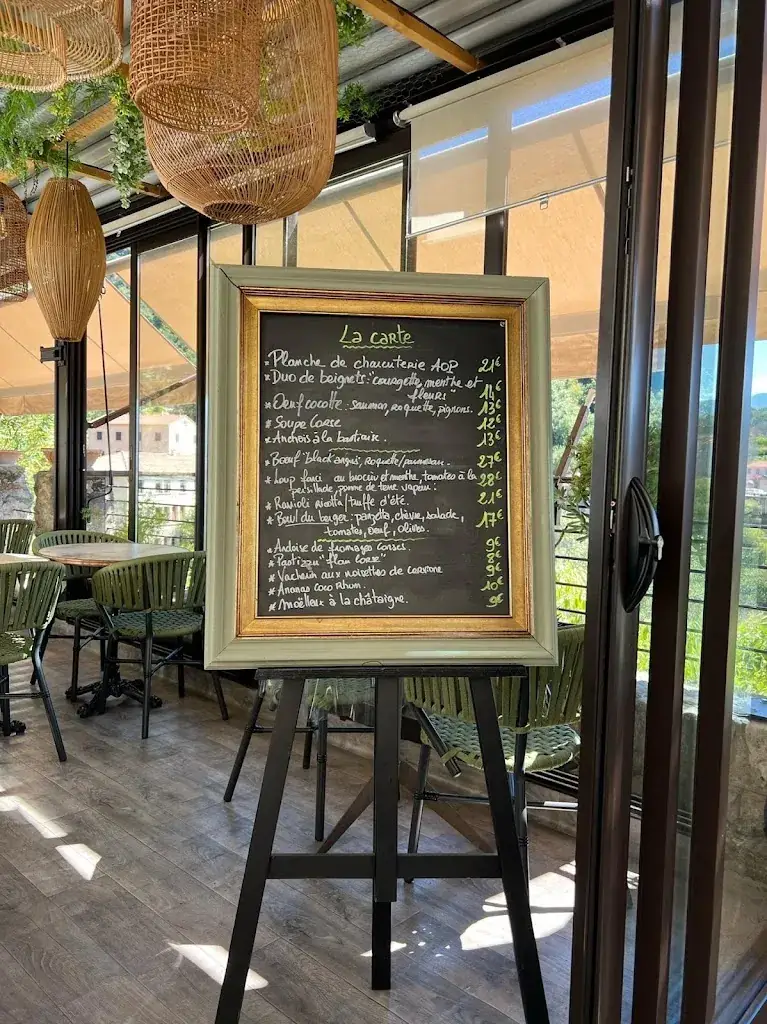 La carte
* Planche de charcuterie AOP 21€
* Duo de beignets: "courgette, menthe et
fleurs" 14€
* Oeuf cocotte: saumon, roquette, pignons. 13€
* Soupe Corse 12€
* Anchois à la bastiaise. 13€
* Boeuf "black angus", roquette/parmesan. 27€
* Loup farci au brocciu et menthe, tomates à la 28€
persillade, pomme de terre vapeur.
* Ravioli ricotta/truffe d'été. 21€
* Bowl du berger: panzetta, chèvre, salade, 17€
tomates, oeuf, olives.
* Ardoise de fromages corses. 9€
* Pastizzu "flan corse"
* Vacherin aux noisettes de Cervione 9€
* Ananas Coco Rhum. 10€
* Moëlleux à la châtaigne. 9€